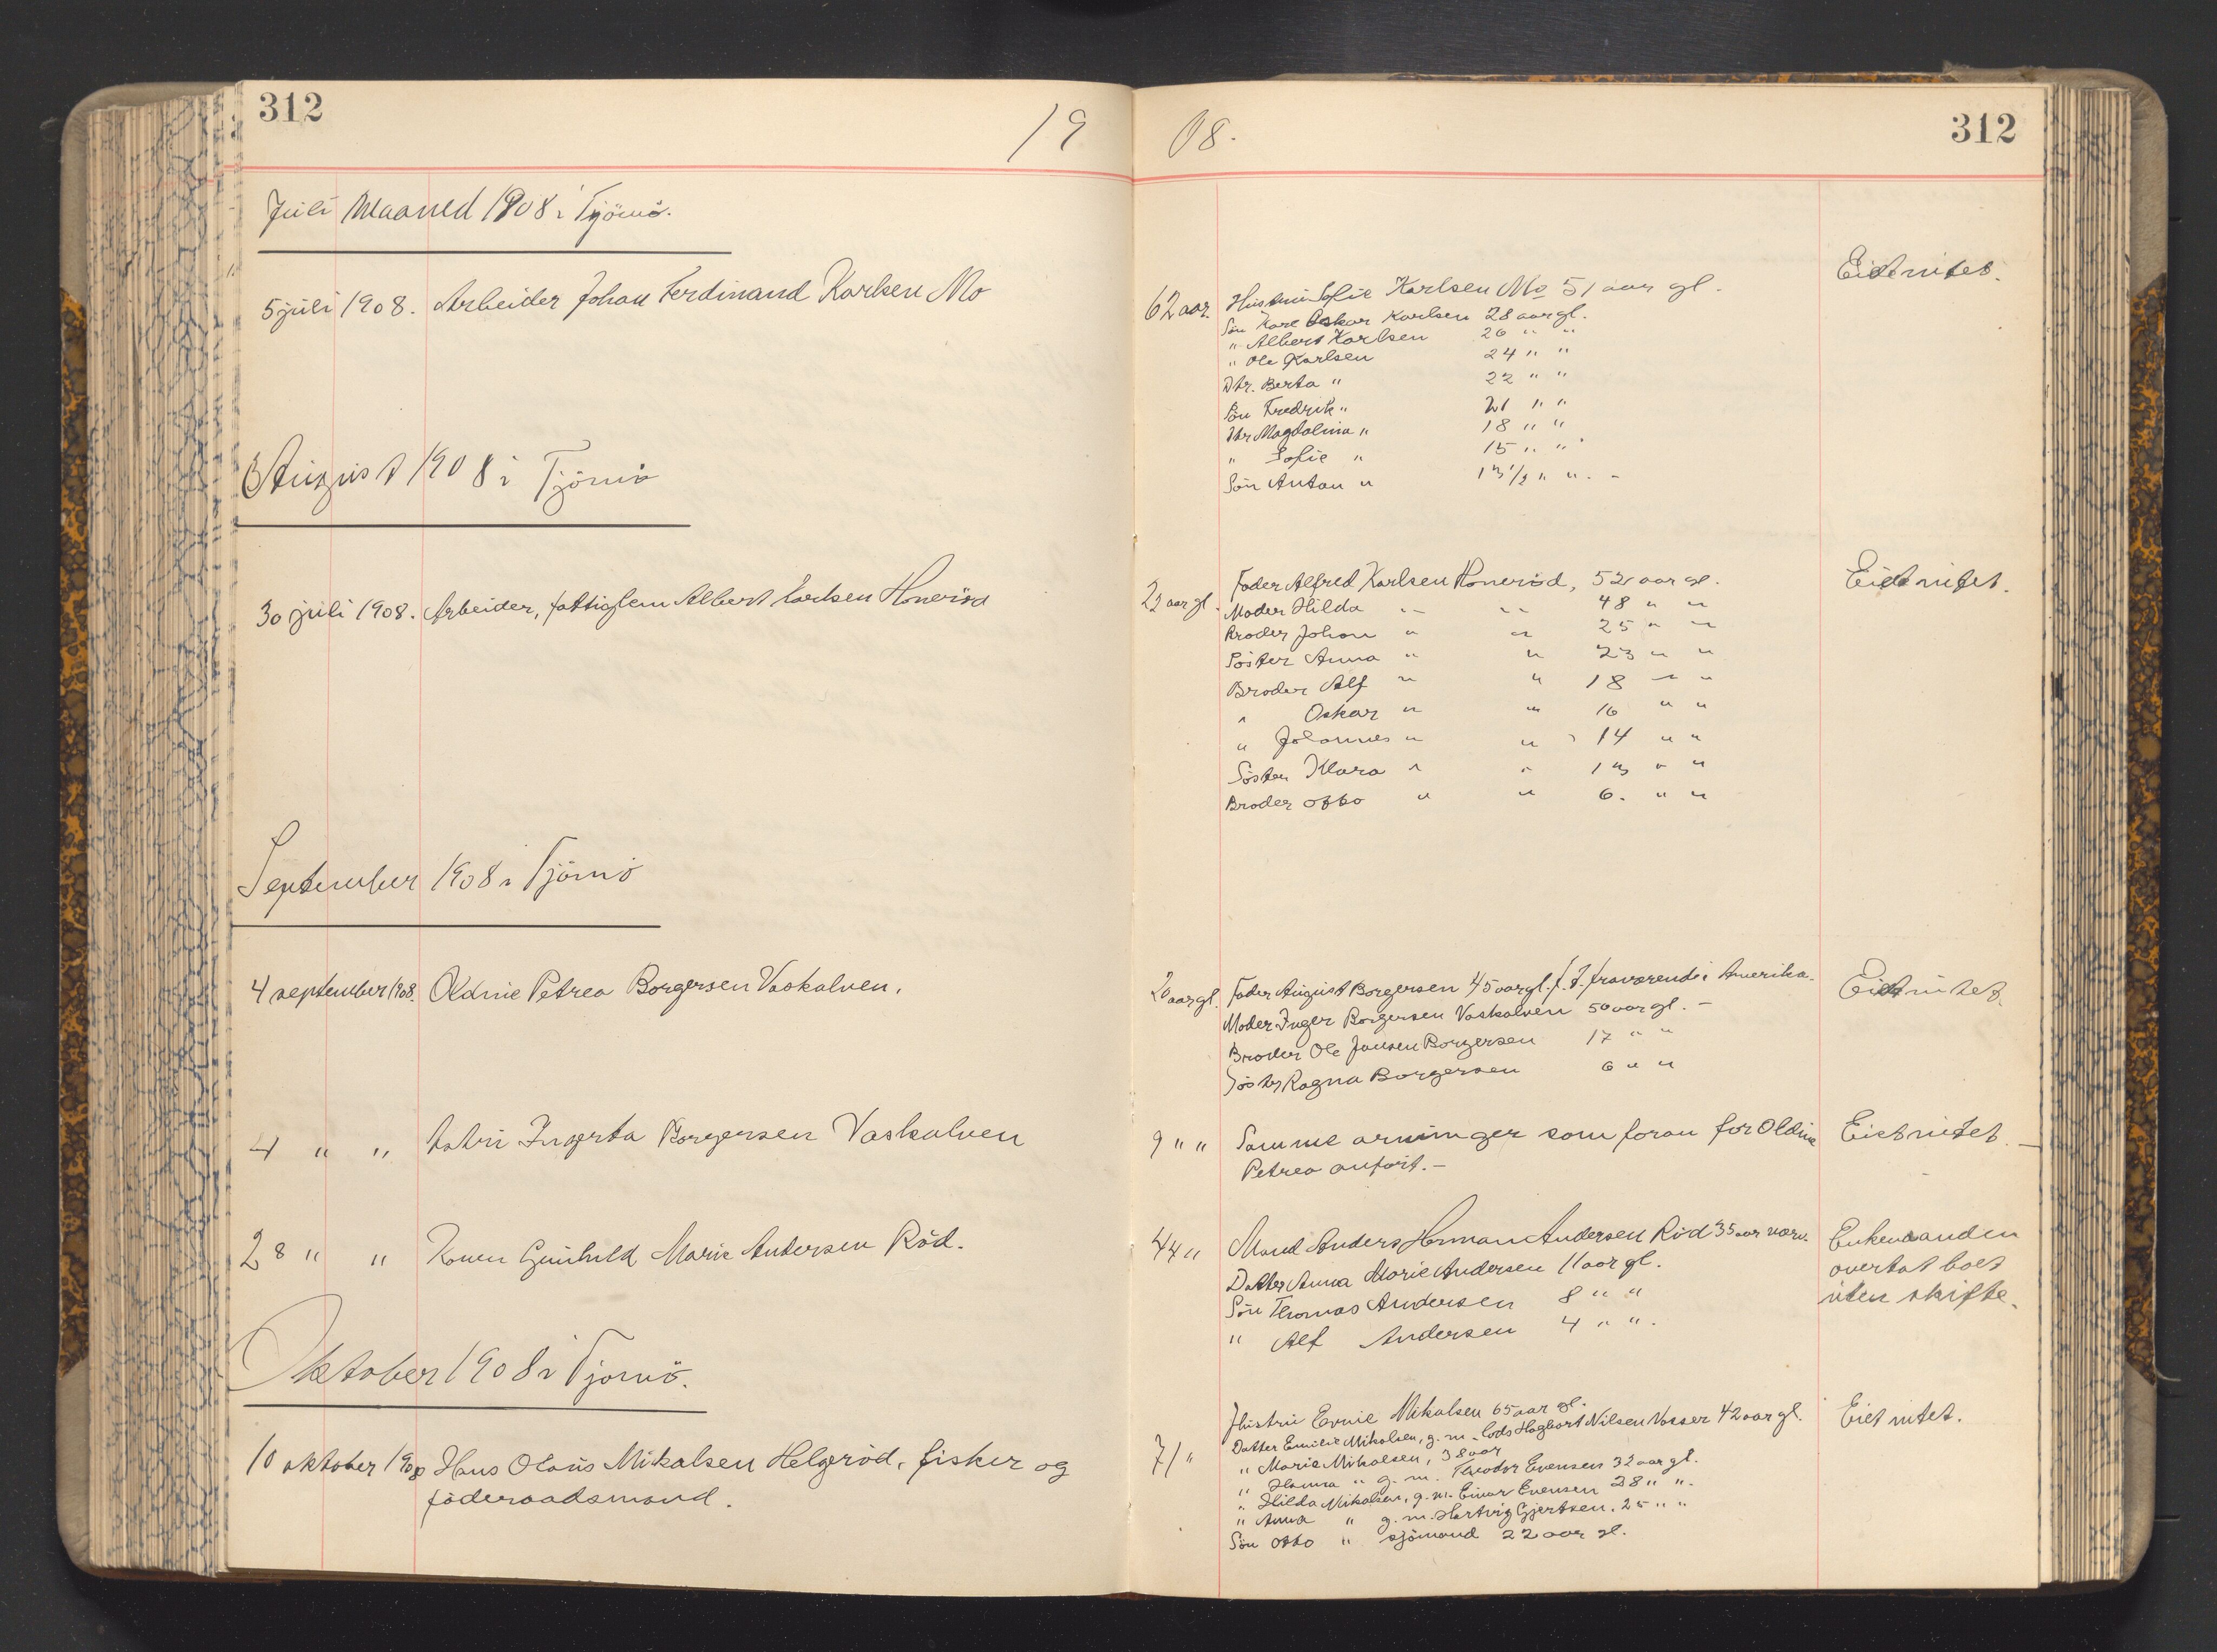 312
19 08.
312
Juli Maaned 1908 i Tjömö.
5 juli 1908. Arbeider Johan Ferdinand Karlsen Mo
62 aar. Hustru Sofie Karlsen Mo 51 aar gl.
Eiet intet.
Sön Karl Oskar Karlsen 28 aar gl.
" Albert Karlsen 26 " "
" Ole Karlsen 24 " "
Dtr. Berta " 22 " "
Sön Fredrik " 21 " "
Dtr Magdalina " 18 " "
" Sofie " 15 " "
Sön Anton " 13 1/2 " " . -
August 1908 i Tjömö
30 juli 1908. Arbeider, fattiglem Albert Karlsen Honeröd
22 aar gl. Fader Alfred Karlsen Honeröd, 52 aar gl.
Eiet intet.
Moder Hilda " " 48 " "
Broder Johan " " 25 " "
Söster Anna " " 23 " "
Broder Alf " " 18 " "
" Oskar " " 16 " "
" Johannes " " 14 " "
Söster Klara " " 13 " "
Broder Otto " " 6. " "
September 1908 i Tjömö
4 september 1908. Oldine Petrea Borgersen Vaskalven.
20 aar gl. Fader August Borgersen 45 aar gl. f. T. fraværende i Amerika.
Eiet intet.
Moder Inger Borgersen Vaskalven 50 aar gl. -
Broder Ole Jansen Borgersen 17 " "
Söster Ragna Borgersen 6 " "
4 " " Astri Ingerta Borgersen Vaskalven
9 " " Samme arvinger som foran for Oldine
Petrea anfört. -
Eiet intet. -
28 " " Konen Gunhild Marie Andersen Röd.
44 " Mand Anders Herman Andersen Röd 35 aar
Datter Anna Marie Andersen 11 aar gl.
Sön Thomas Andersen 8 " "
" Alf Andersen 4 " ".
Enkemanden
overtat boet
uten skifte.
Oktober 1908 i Tjömö.
10 oktober 1908 Hans Olaus Mikalsen Helgeröd, fisker og
föderaadsmand.
71 " Hustru Mikalsen 65 aar gl.
Eiet intet.
Datter Emilie Mikalsen, g. m. Lods Hagbart Nilsen Vasser 42 aar gl.
" Marie Mikalsen, 38 aar
" Hanna " g. m. Theodor Evensen 32 aar gl.
" Hilda Mikalsen, g. m. Einar Evensen 28 " ".
" Anna " g. m. Hartvig Gjertsen. 25 " "
Sön Otto " sjömand 22 aar gl.